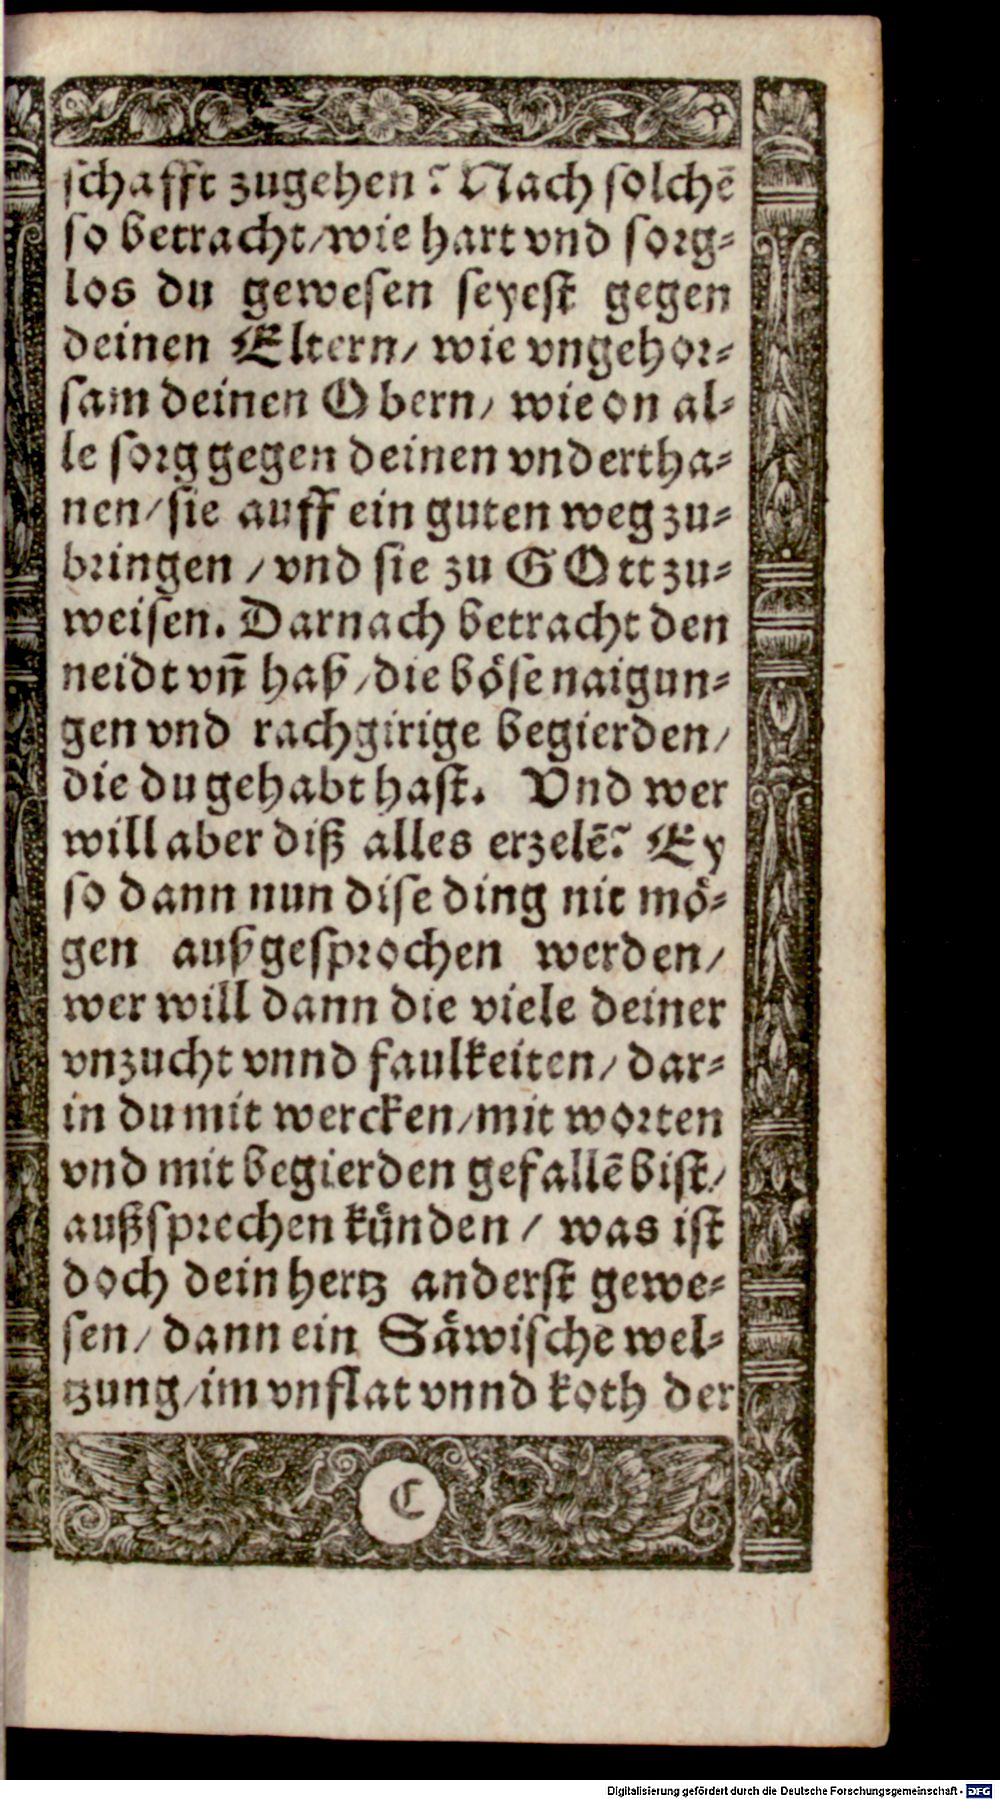 schafft zugehen? Nach solchẽ
so betracht/wie hart vnd sorg⸗
los du gewesen seyest gegen
deinen Eltern/ wie vngehor⸗
sam deinen Obern/ wie on al⸗
le sorg gegen deinen vndertha⸗
nen/sie auff ein guten weg zu⸗
bringen / vnd sie zu GOtt zu⸗
weisen. Darnach betracht den
neidt vñ haß/die bőse naigun⸗
gen vnd rachgirige begierden/
die du gehabt hast. Vnd wer
will aber diß alles erzelẽ? Ey
so dann nun dise ding nit moͤ⸗
gen außgesprochen werden/
wer will dann die viele deiner
vnzucht vnnd faulkeiten/ dar⸗
in du mit wercken/mit worten
vnd mit begierden gefallẽ bist/
außsprechen kuͤnden / was ist
doch dein hertz anderst gewe⸗
sen/ dann ein Saͤwische wel⸗
tzung/im vnflat vnnd koth der
C
Digitalisierung gefördert durch die Deutsche Forschungsgemeinschaft - DFG